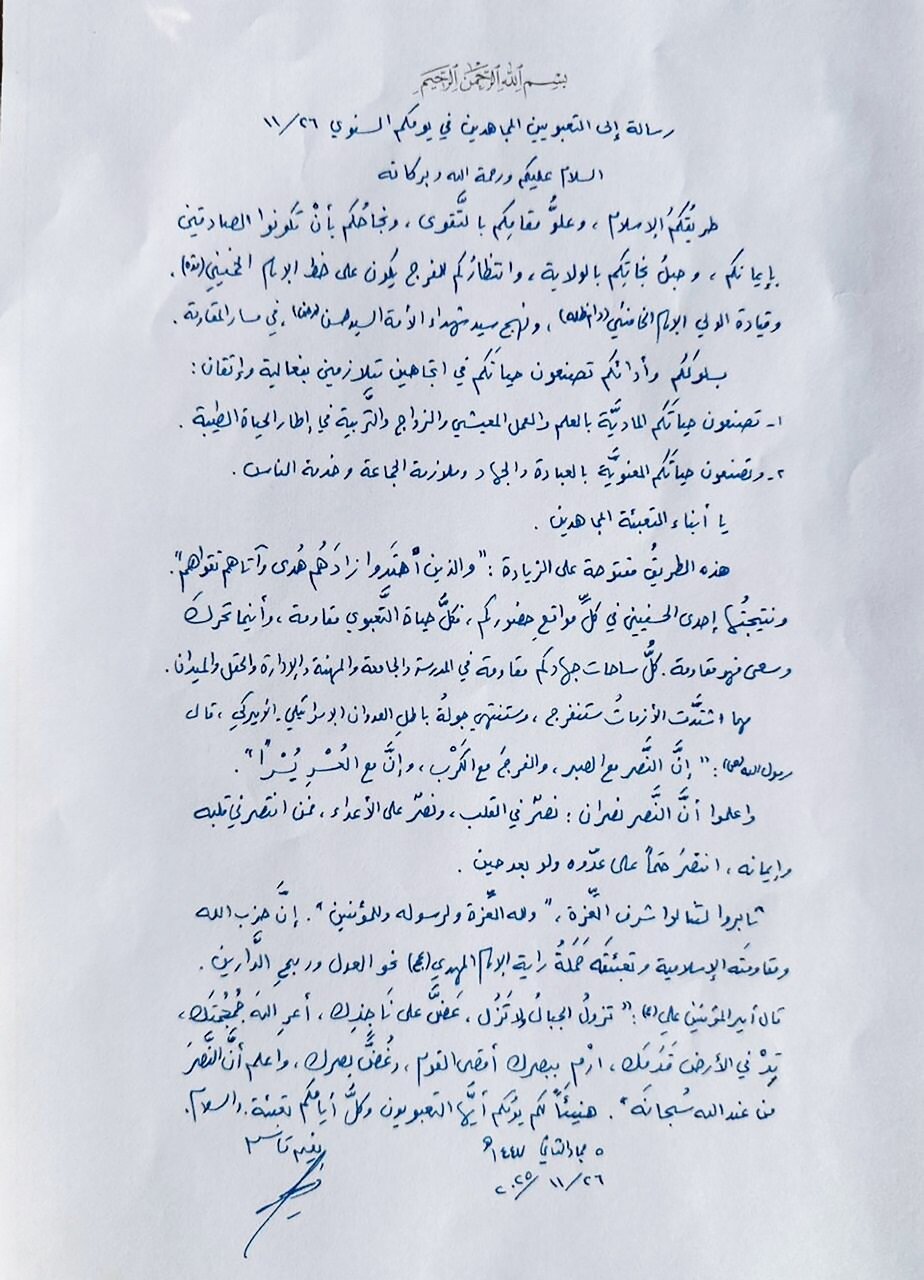 بِسْمِ اللهِ الرَّحْمٰنِ الرَّحِيمِ
رسالة إلى التعبويين المجاهدين في يومكم السنوي ١١/٢٦
السلام عليكم ورحمة الله وبركاته
طريقُكُم الإسلام، وعلوُّ مقامِكم بالتَّقوى، ونجاحُكم بأنْ تكونوا الصادقين
بإيمانكم، وحبلُ نجاتِكم بالولاية، وانتظارُكم للفرج يكون على خط الإمام الخميني (قده).
وقيادة الولي الإمام الخامنئي (دام ظله)، ونهج سيد شهداء الأمة السيد حسن (رض)، في مسار المقاومة.
بسلوككم وأدائكم تصنعون حياتَكم في اتجاهين متلازمين بفعالية وإتقان:
١- تصنعون حياتَكم الماديَّة بالعلم والعمل المعيشي والزواج والتَّربية في إطار الحياة الطيبة.
٢- وتصنعون حياتَكم المعنويَّة بالعبادة والجهاد وملازمة الجماعة وخدمة الناس.
يا أبناء التعبئة المجاهدين.
هذه الطريقُ مفتوحة على الزيادة: "والذين اهتَدوا زادَهُم هُدى وآتاهم تقواهم".
ونتيجتُها إحدى الحسنيين في كلِّ مواقع حضوركم، فكلُّ حياة التَّعبوي مقاومة، وأينما تحرك
وسعى فهو مقاومة. كلُّ ساحات جهادكم مقاومة في المدرسة والجامعة والمهنة والإدارة والحقل والميدان.
مهما اشتدَّت الأزماتُ ستنفرج، وستنتهي جولةُ باطلِ العدوان الإسرائيلي-الأميركي، قال
رسول الله (ص): "إنَّ النَّصر مع الصبر، والفرجَ مع الكَرْب، وإنَّ مع العُسْرِ يُسْراً".
واعلموا أنَّ النَّصر نصران: نصرٌ في القلب، ونصرٌ على الأعداء، فمن انتصر في قلبه
وإيمانه، انتصرَ حتماً على عدّوه ولو بعد حين.
ثابروا لتنالوا شرف العِّزة، "ولله العِّزة ولرسوله وللمؤمنين". إنَّ حزب الله
ومقاومتَه الإسلامية وتعبئتَه حَمَلةُ راية الإمام المهدي (عج) نحو العدل وربح الدَّارين.
قال أمير المؤمنين علي (ع): "تزولُ الجبالُ ولا تَزُل، عَضَّ على نَاجذِك، أعرِ اللهَ جُمْجُمَتَك،
تِدْ في الأرضِ قَدَمَك، ارْمِ ببصرك أقصى القوم، وغُضَّ بصرك، واعلم أنَّ النَّصرَ
من عند الله سُبحانَه". هنيئاً لكم يومُكم أيُّها التعبويون وكلُّ أيامِكم تعبئة. والسلام.
٥ جماد الثاني ١٤٤٧ه نعيم قاسم
٢٠٢٥/١١/٢٦